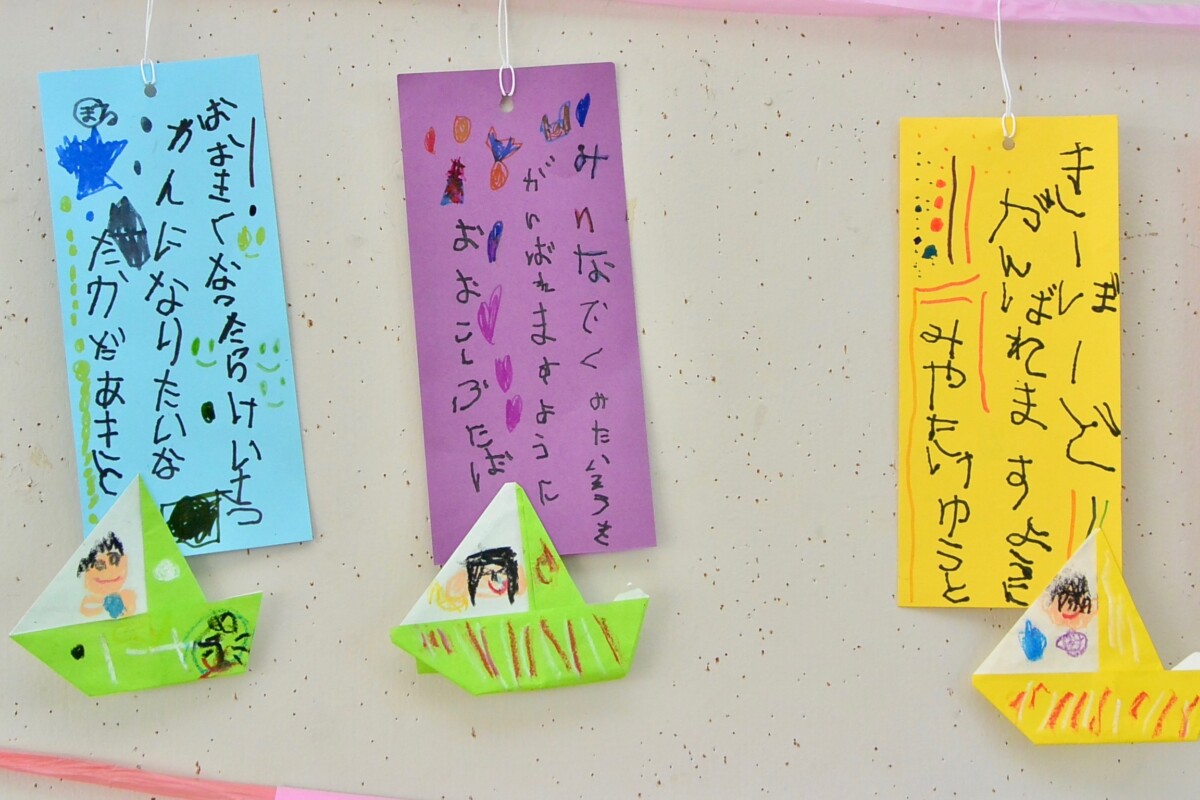 おおきくなったらけいさつ
かんになりたいな
たかだあきと
みんなでくみたいそうを
がんばれますように
がんばれますように
みやたけゆうと